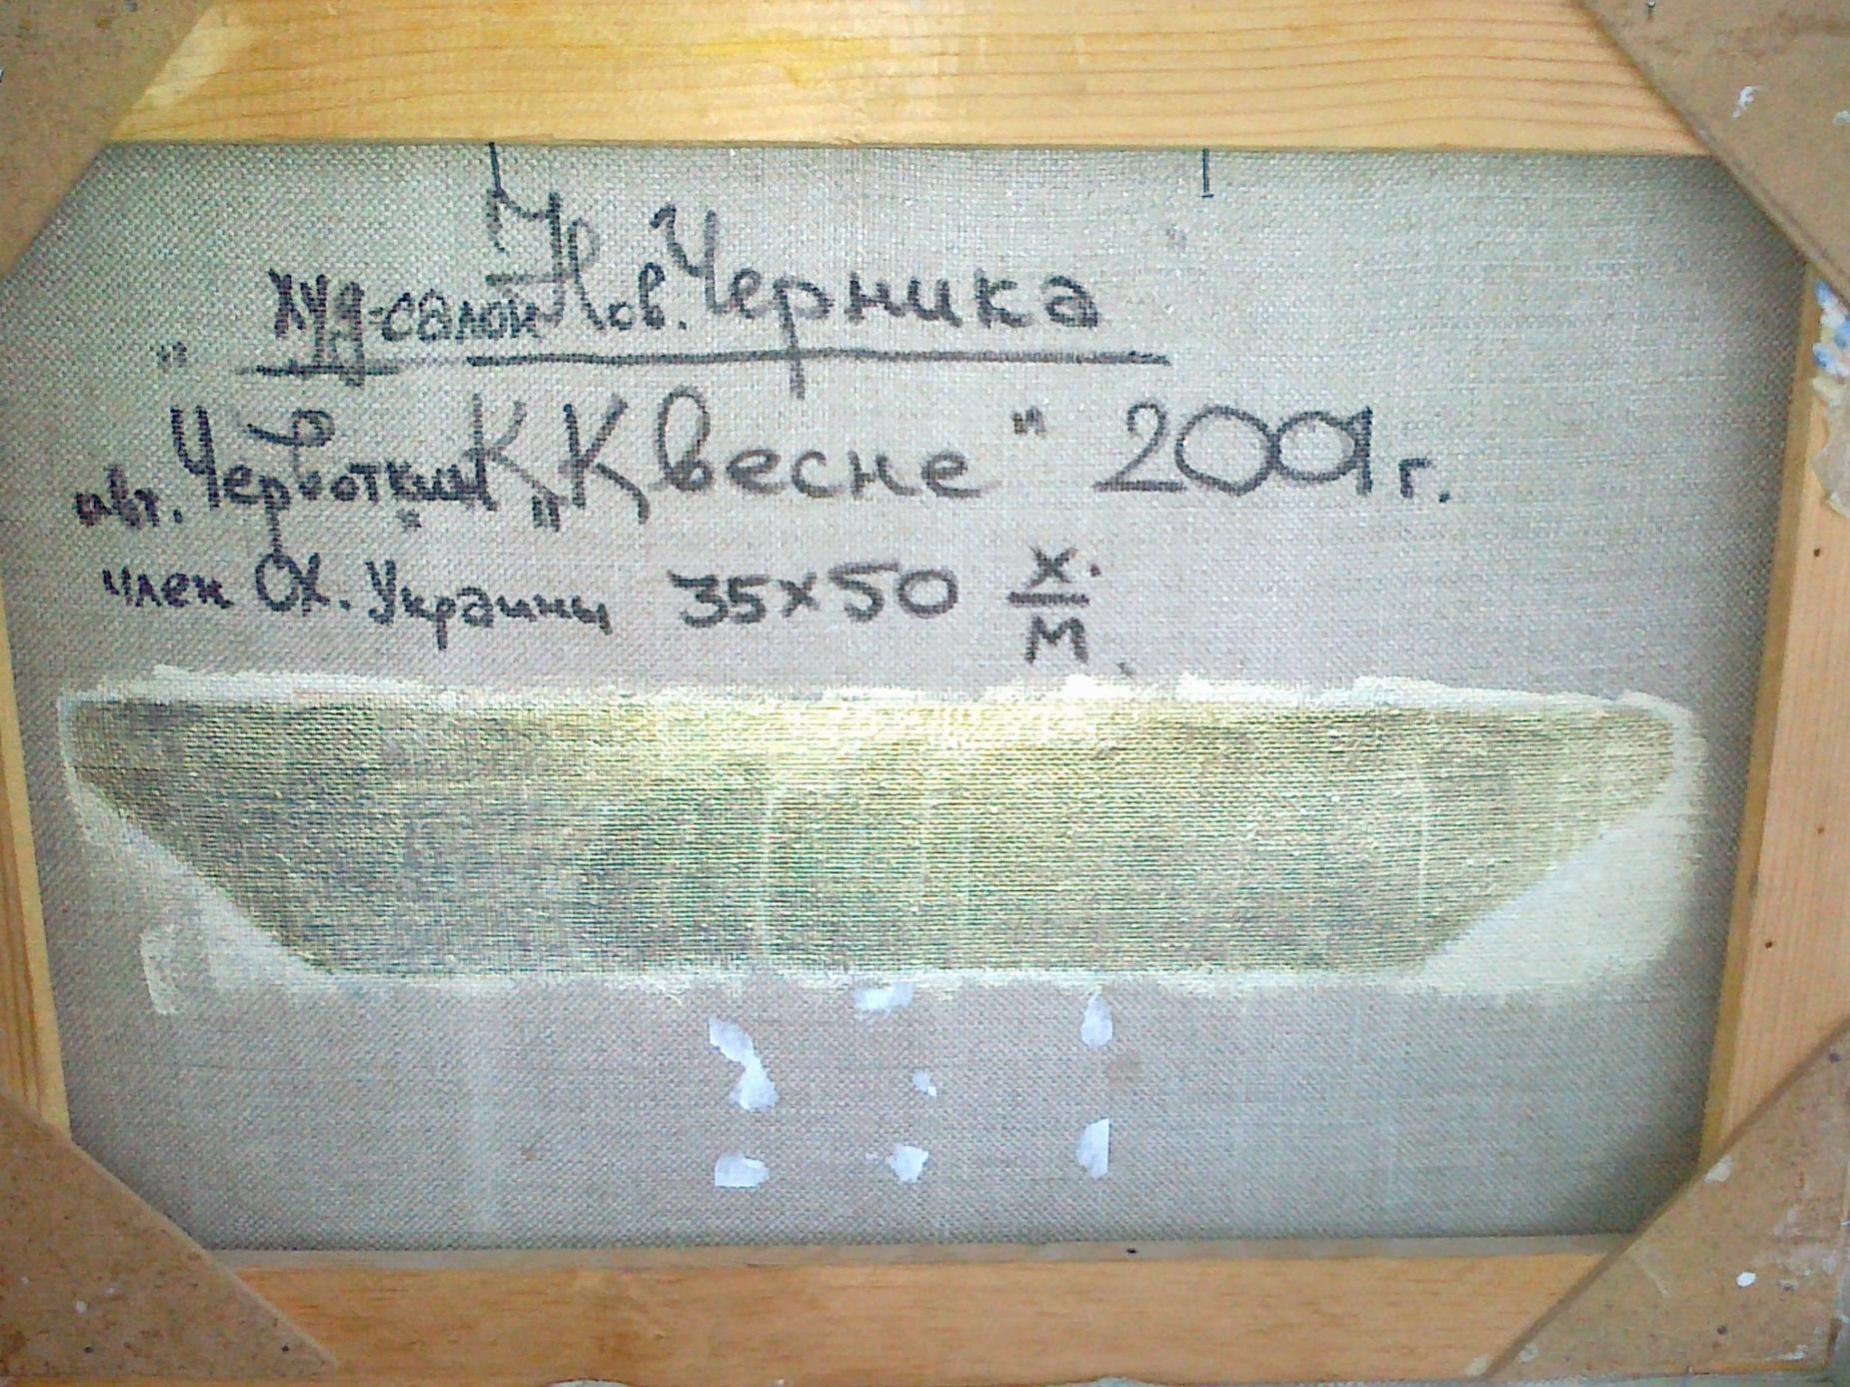 худ-салон Нов. Черника
авт. Червоткин К „К весне" 2001 г.
член ОХ. Украины 35х50 х. / м.